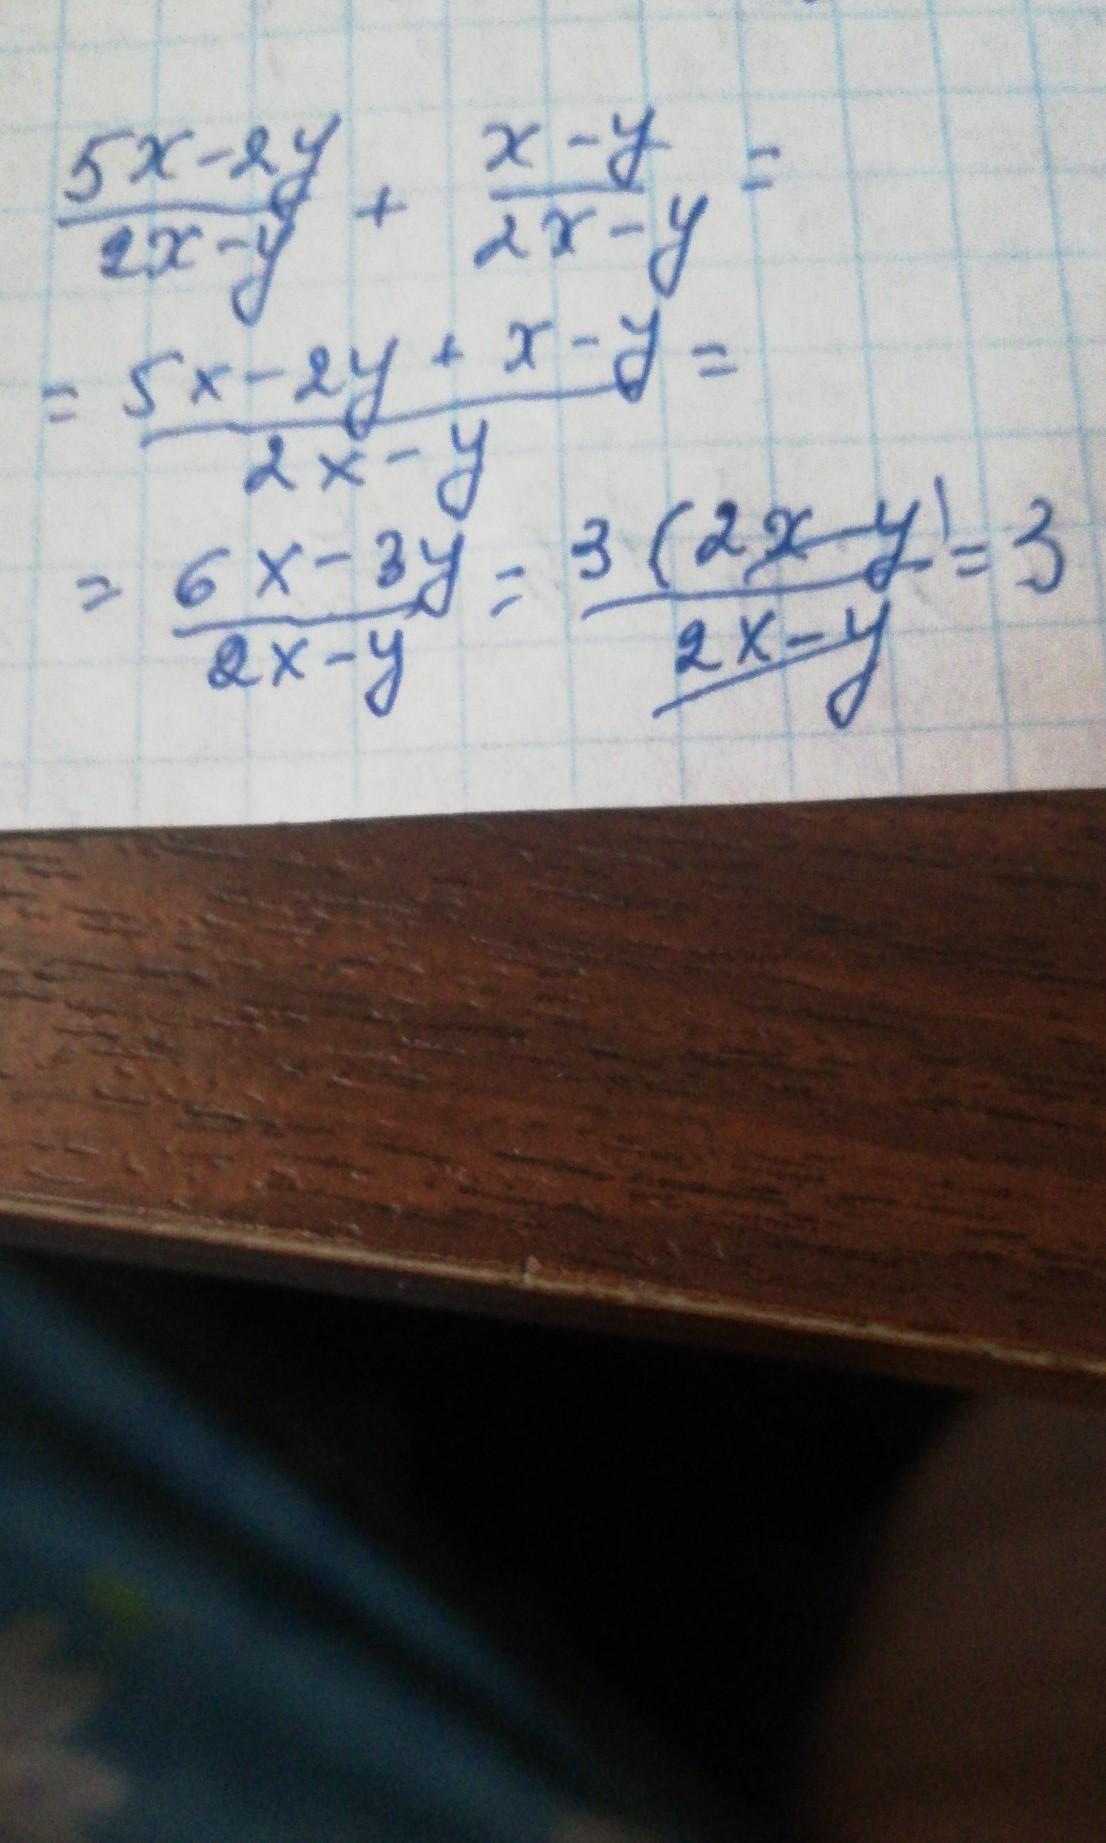 (5x-2y)/(2x-y) + (x-y)/(2x-y) =
= (5x-2y+x-y)/(2x-y) =
= (6x-3y)/(2x-y) = 3(2x-y)/(2x-y) = 3